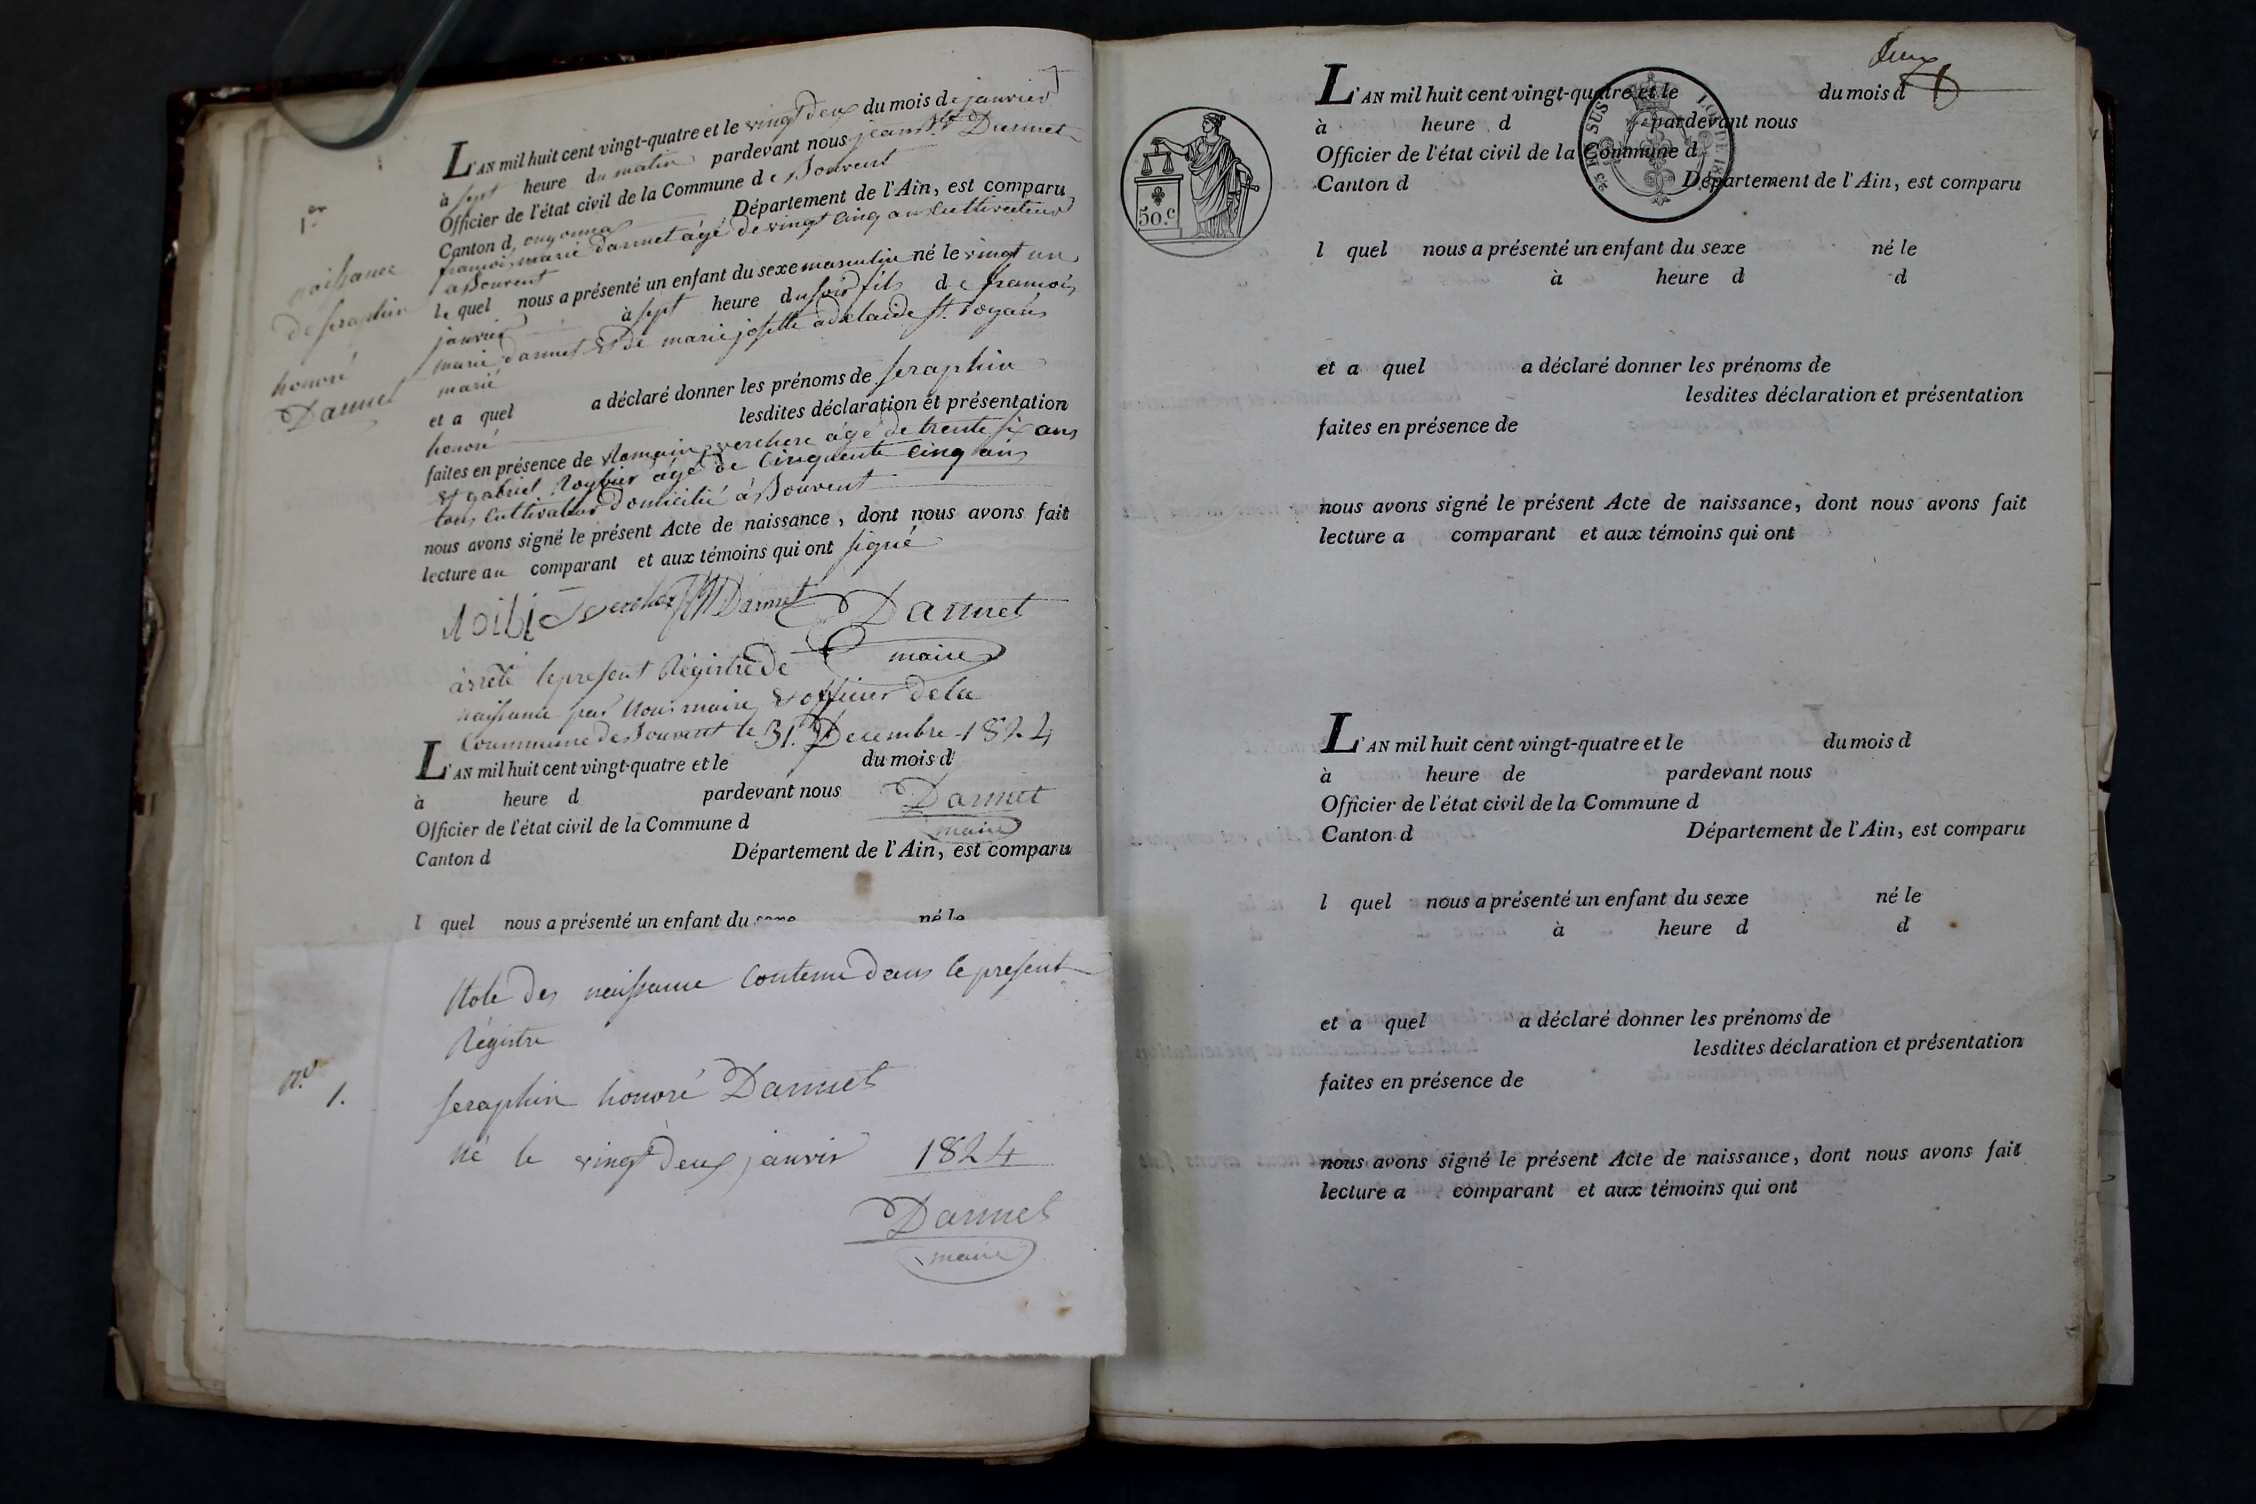 1.er
naissance
de seraphin
honoré
Darmet
L'AN mil huit cent vingt-quatre et le vingt deux du mois de janvier
à sept heure du matin pardevant nous jean Darmet
Officier de l'état civil de la Commune de Bouvent
Canton d'oyonnax Département de l'Ain, est comparu
francois marie darmet agé de vingt cinq ans cultivateur
a Bouvent
le quel nous a présenté un enfant du sexe masculin né le vingt un
janvier à sept heure du soir fils de francois
marie darmet & de marie josette adelaide
marié
et a quel a déclaré donner les prénoms de seraphin
honoré lesdites déclaration et présentation
faites en présence de Romain verchere agé de trente six ans
& gabriel Roybier agé de cinquente cinq ans
tous cultivateur domicilié à Bouvent
nous avons signé le présent Acte de naissance, dont nous avons fait
lecture au comparant et aux témoins qui ont signé
Darmet Darmet
maire
arreté le present Régistre de
naissance par Nous maire & officier de la
Commune de Bouvent le 31. Decembre 1824
L'AN mil huit cent vingt-quatre et le du mois d
à heure d pardevant nous
Darmet
Officier de l'état civil de la Commune d
maire
Canton d Département de l'Ain, est comparu
l quel nous a présenté un enfant du sexe né le
Role des naissance contenu dans le present
Régistre
n.o 1. seraphin honoré Darmet
né le vingt deux janvier 1824
Darmet
maire
deux
50.c
L'AN mil huit cent vingt-quatre et le du mois d
à heure d pardevant nous
Officier de l'état civil de la Commune d
Canton d Département de l'Ain, est comparu
l quel nous a présenté un enfant du sexe né le
à heure d d
et a quel a déclaré donner les prénoms de
lesdites déclaration et présentation
faites en présence de
nous avons signé le présent Acte de naissance, dont nous avons fait
lecture a comparant et aux témoins qui ont
L'AN mil huit cent vingt-quatre et le du mois d
à heure de pardevant nous
Officier de l'état civil de la Commune d
Canton d Département de l'Ain, est comparu
l quel nous a présenté un enfant du sexe né le
à heure d d
et a quel a déclaré donner les prénoms de
lesdites déclaration et présentation
faites en présence de
nous avons signé le présent Acte de naissance, dont nous avons fait
lecture a comparant et aux témoins qui ont